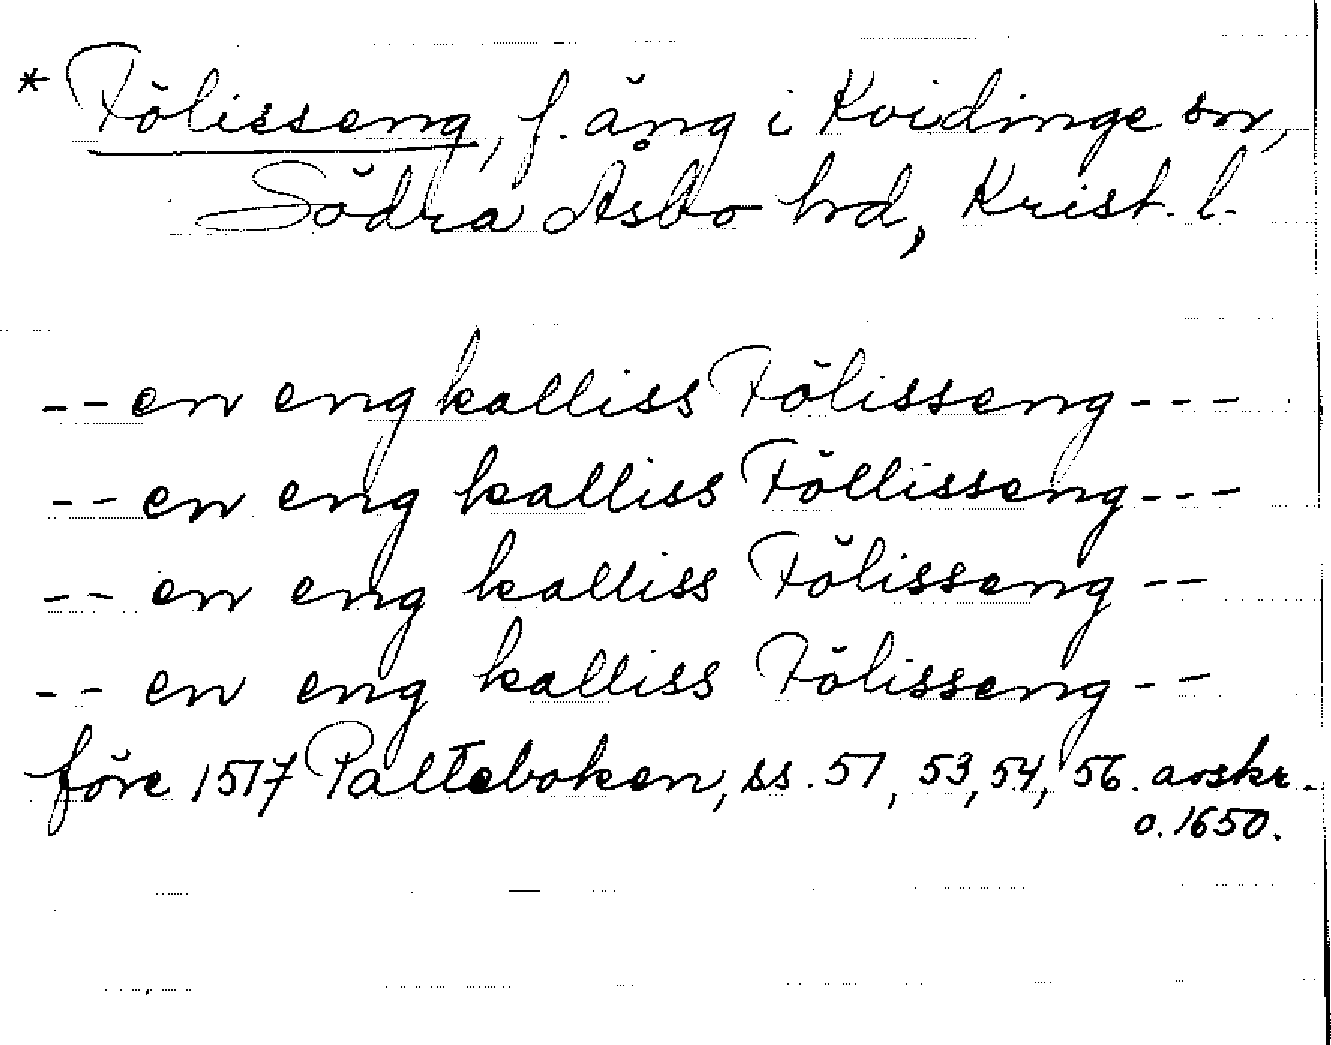 * Fölisseng, f. äng i Kvidinge sn,
Södra Åsbo hd, Krist. l.
-- en eng kalliss Fölisseng ---
-- en eng kalliss Föllisseng ---
-- en eng kalliss Fölisseng --
-- en eng kalliss Fölisseng --
före 1517 Palteboken, ss. 51, 53, 54, 56. avskr.
o. 1650.